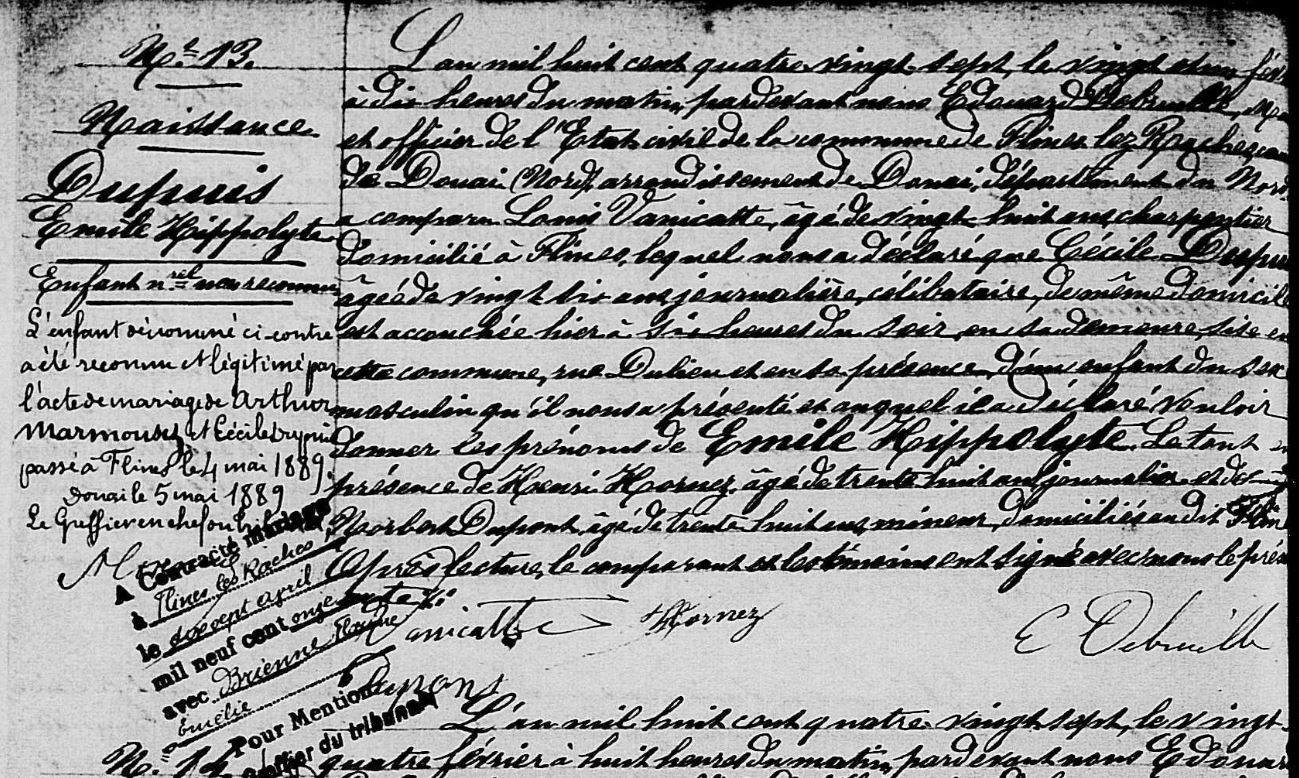 N.° 13.
Naissance
Dupuis
Emile Hippolyte
Enfant n.rel non reconnu
L'enfant dénommé ci-contre
a été reconnu et légitimé par
l'acte de mariage de Arthur
Marmousez et Cécile Dupuis
passé à Flines le 4 mai 1889.
Douai le 5 mai 1889
Le Greffier en chef
A Contracté mariage
à Flines les Raches
le dix sept april
mil neuf cent onze
avec Brienne
Emélie
Pour Mention
Greffier du tribunal
L'an mil huit cent quatre vingt sept, le vingt et un fév
à dix heures du matin, pardevant nous Edouard Debruille, Ma
et officier de l'Etat civil de la commune de Flines lez Raches, can
de Douai (Nord) arrondissement de Douai, département du Nord
a comparu Louis Vanicatte, âgé de vingt huit ans, charpentier
domicilié à Flines, lequel nous a déclaré que Cécile Dupui
âgée de vingt six ans journalière, célibataire, de même domicile
est accouchée hier à six heures du soir, en sa demeure, sise en
cette commune, rue Dulieu et en sa présence, d'un enfant du sex
masculin qu'il nous a présenté et auquel il a déclaré vouloir
donner les prénoms de Emile Hippolyte. Le tout en
présence de Henri Hornez âgé de trente huit ans journalier et de
Norbert Dupont, âgé de trente huit ans, mineur, domiciliés audit Flin
Après lecture, le comparant et les témoins ont signé avec nous le prés
acte.
Vanicatte Hornez E Debruille
Dupont
N.° 14
L'an mil huit cent quatre vingt sept, le vingt
quatre février à huit heures du matin, pardevant nous Edouar